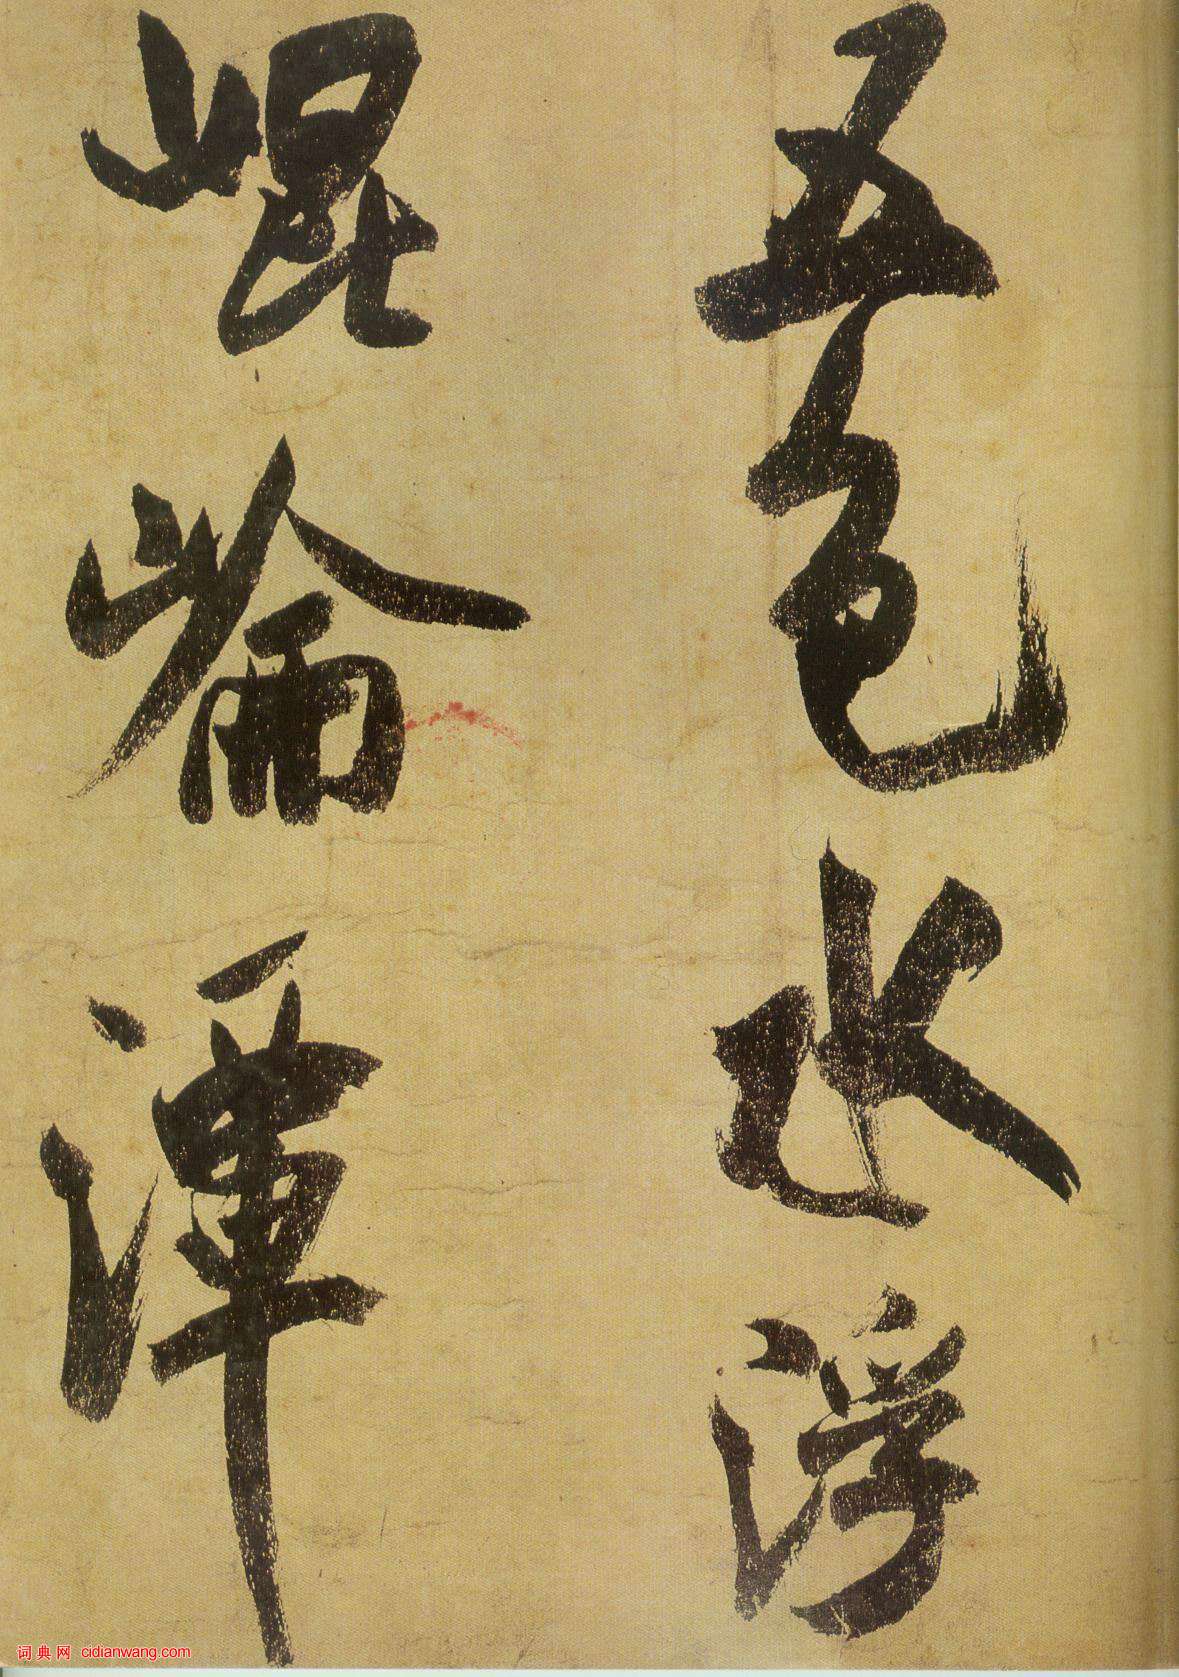 五色水浮
崐崘潭
词典网 cidianwang.com